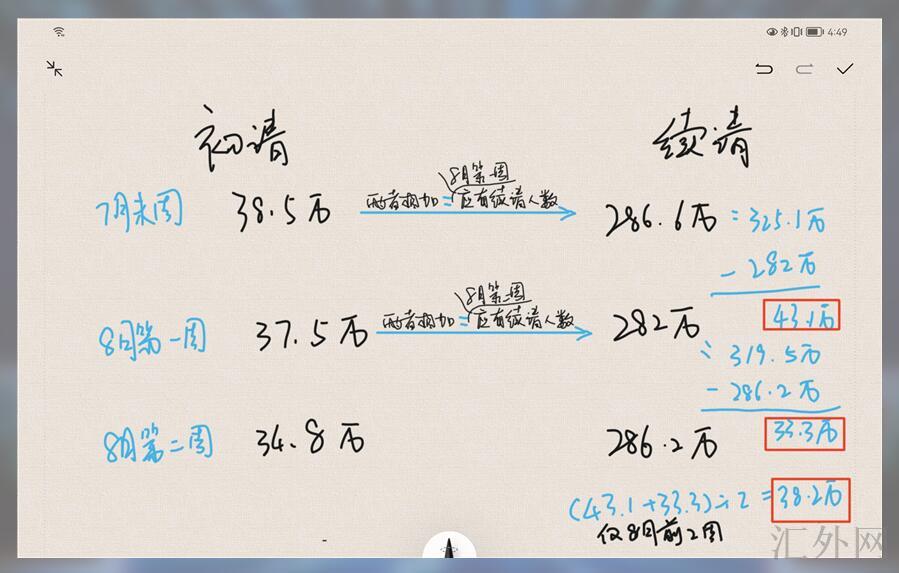 4:49
初请 续请
7月末周 38.5万 两者相加=8月第一周应有续请人数 286.6万 : 325.1万
-282万
43.1万
8月第一周 37.5万 两者相加=8月第二周应有续请人数 282万
: 319.5万
-286.2万
33.3万
8月第二周 34.8万 286.2万
(43.1+33.3)÷2=38.2万
仅8月前2周
汇外网